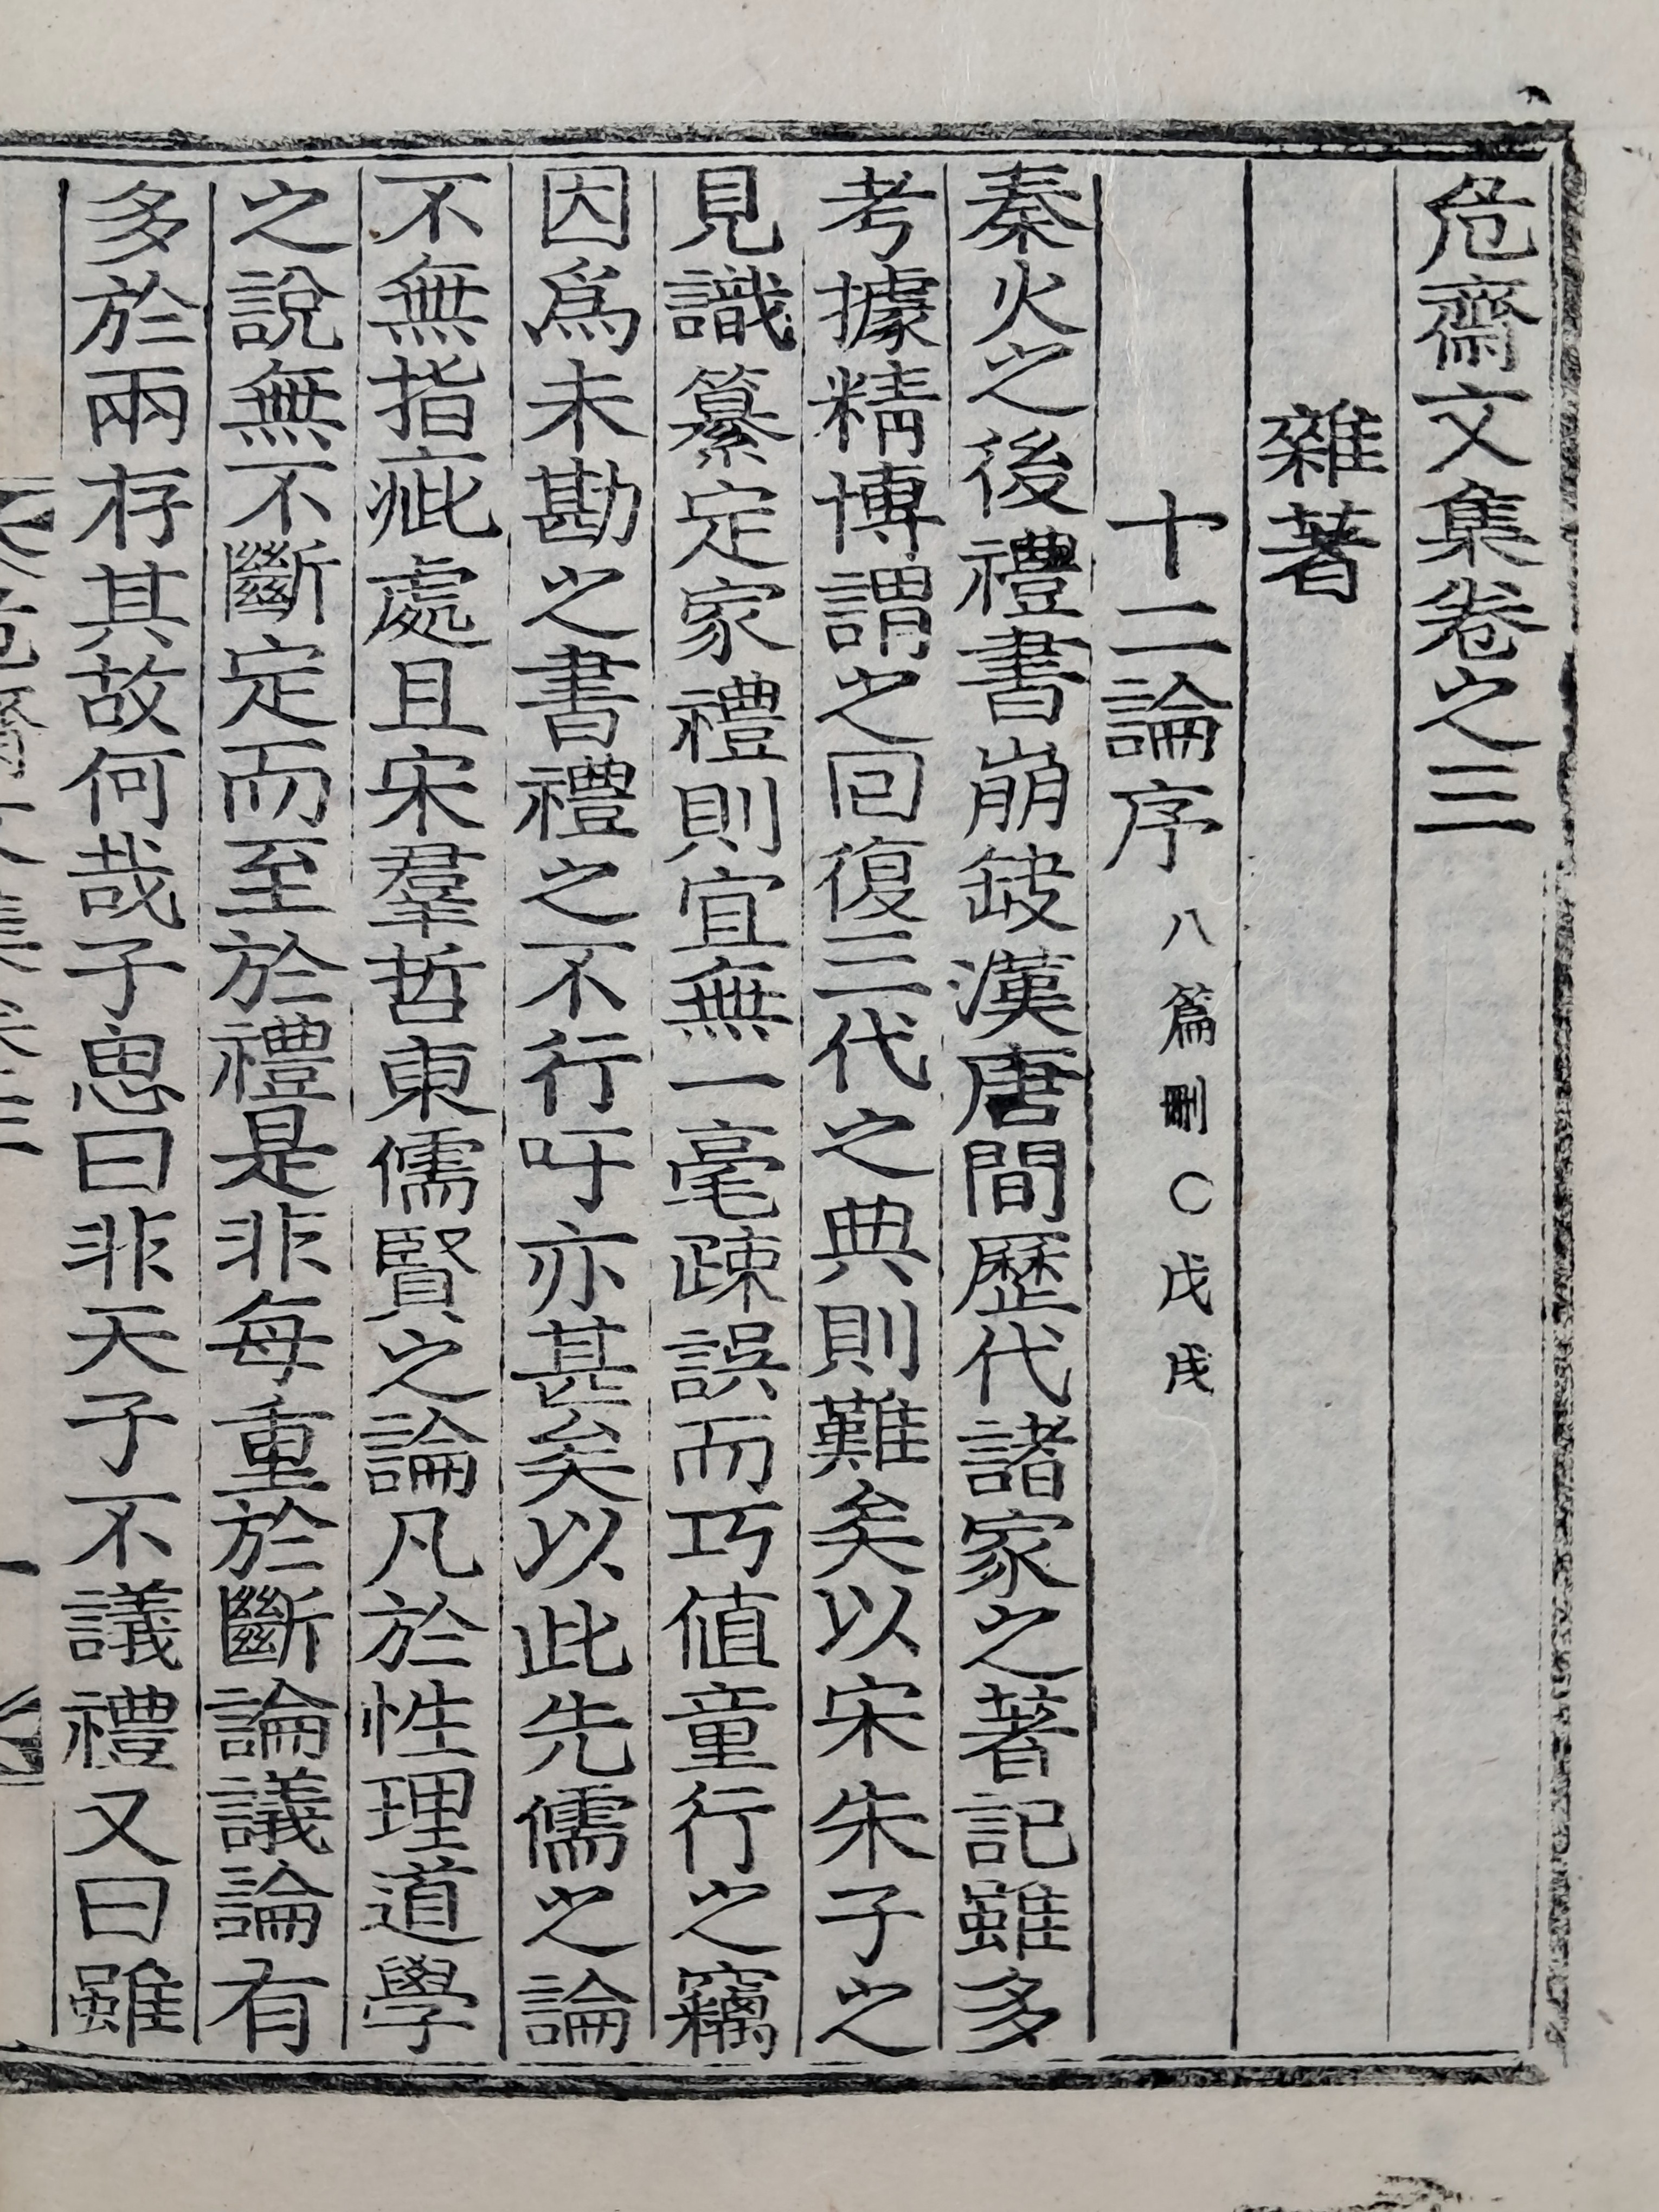 危齋文集卷之三
雜著
十二論序 八篇刪〇戊戌
秦火之後禮書崩鈹漢唐間歷代諸家之著記雖多
考據精博謂之回復三代之典則難矣以宋朱子之
見識纂定家禮則宜無一毫疎誤而巧値童行之竊
因爲未勘之書禮之不行吁亦甚矣以此先儒之論
不無指疵處且宋羣哲東儒賢之論凡於性理道學
之說無不斷定而至於禮是非每重於斷論議論有
多於兩存其故何哉子思曰非天子不議禮又曰雖